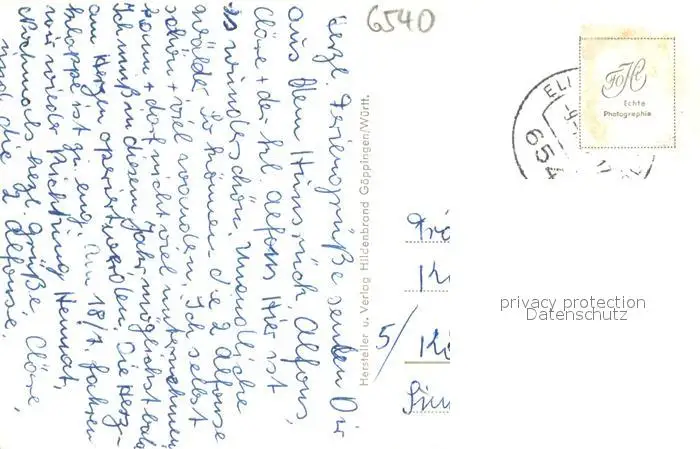 6540
Herzl. Feriengrüße senden Dir
aus dem Hunsrück Alfons,
Cläre + der kl. Alfons. Hier ist
es wunderschön. Unendliche
Wälder. Da können die 2 Alfonse
schön + viel wandern. Ich selbst
kann + darf nicht viel unternehmen
Ich muß in diesem Jahr möglichst bald
am Herzen operiert werden. Die Herz-
klappe ist zu eng. Am 18/7. fahren
wir wieder Richtung Heimat,
Nochmals herzl. Grüße Cläre,
und die 2 Alfonse.
Hersteller u. Verlag Hildenbrand Göppingen/Württ.
FoHi
Echte
Photographie
654
5/
privacy protection
Datenschutz